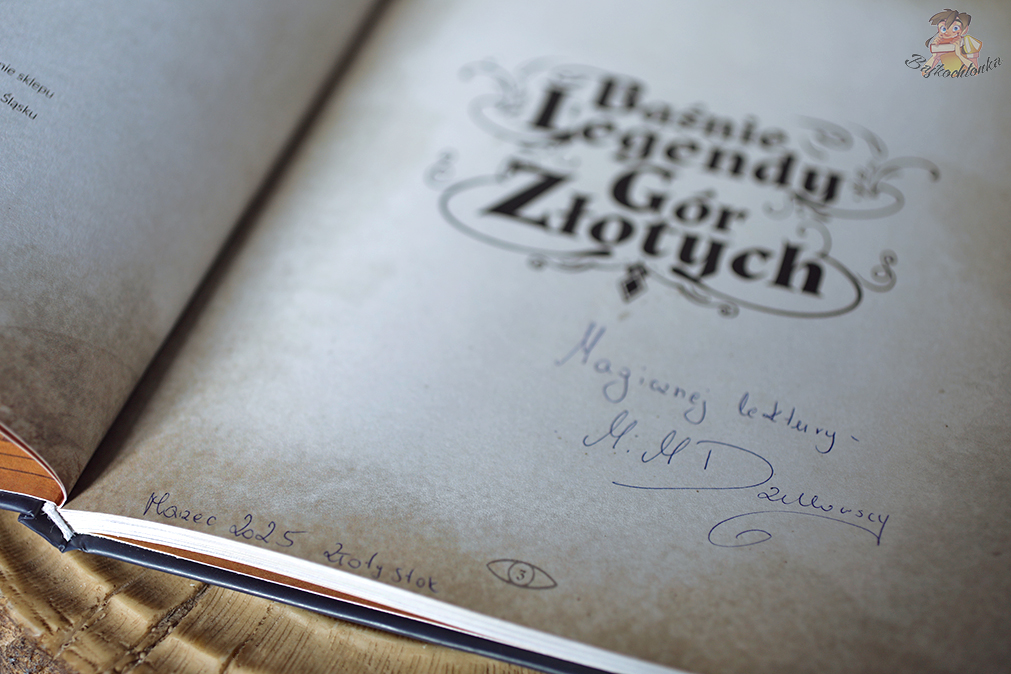 nie sklepu
Śląsku
Baśnie
Legendy
Gór
Złotych
Magicznej lektury -
M. M D
Marzec 2025 Złoty Stok
3
Bajkochłonka